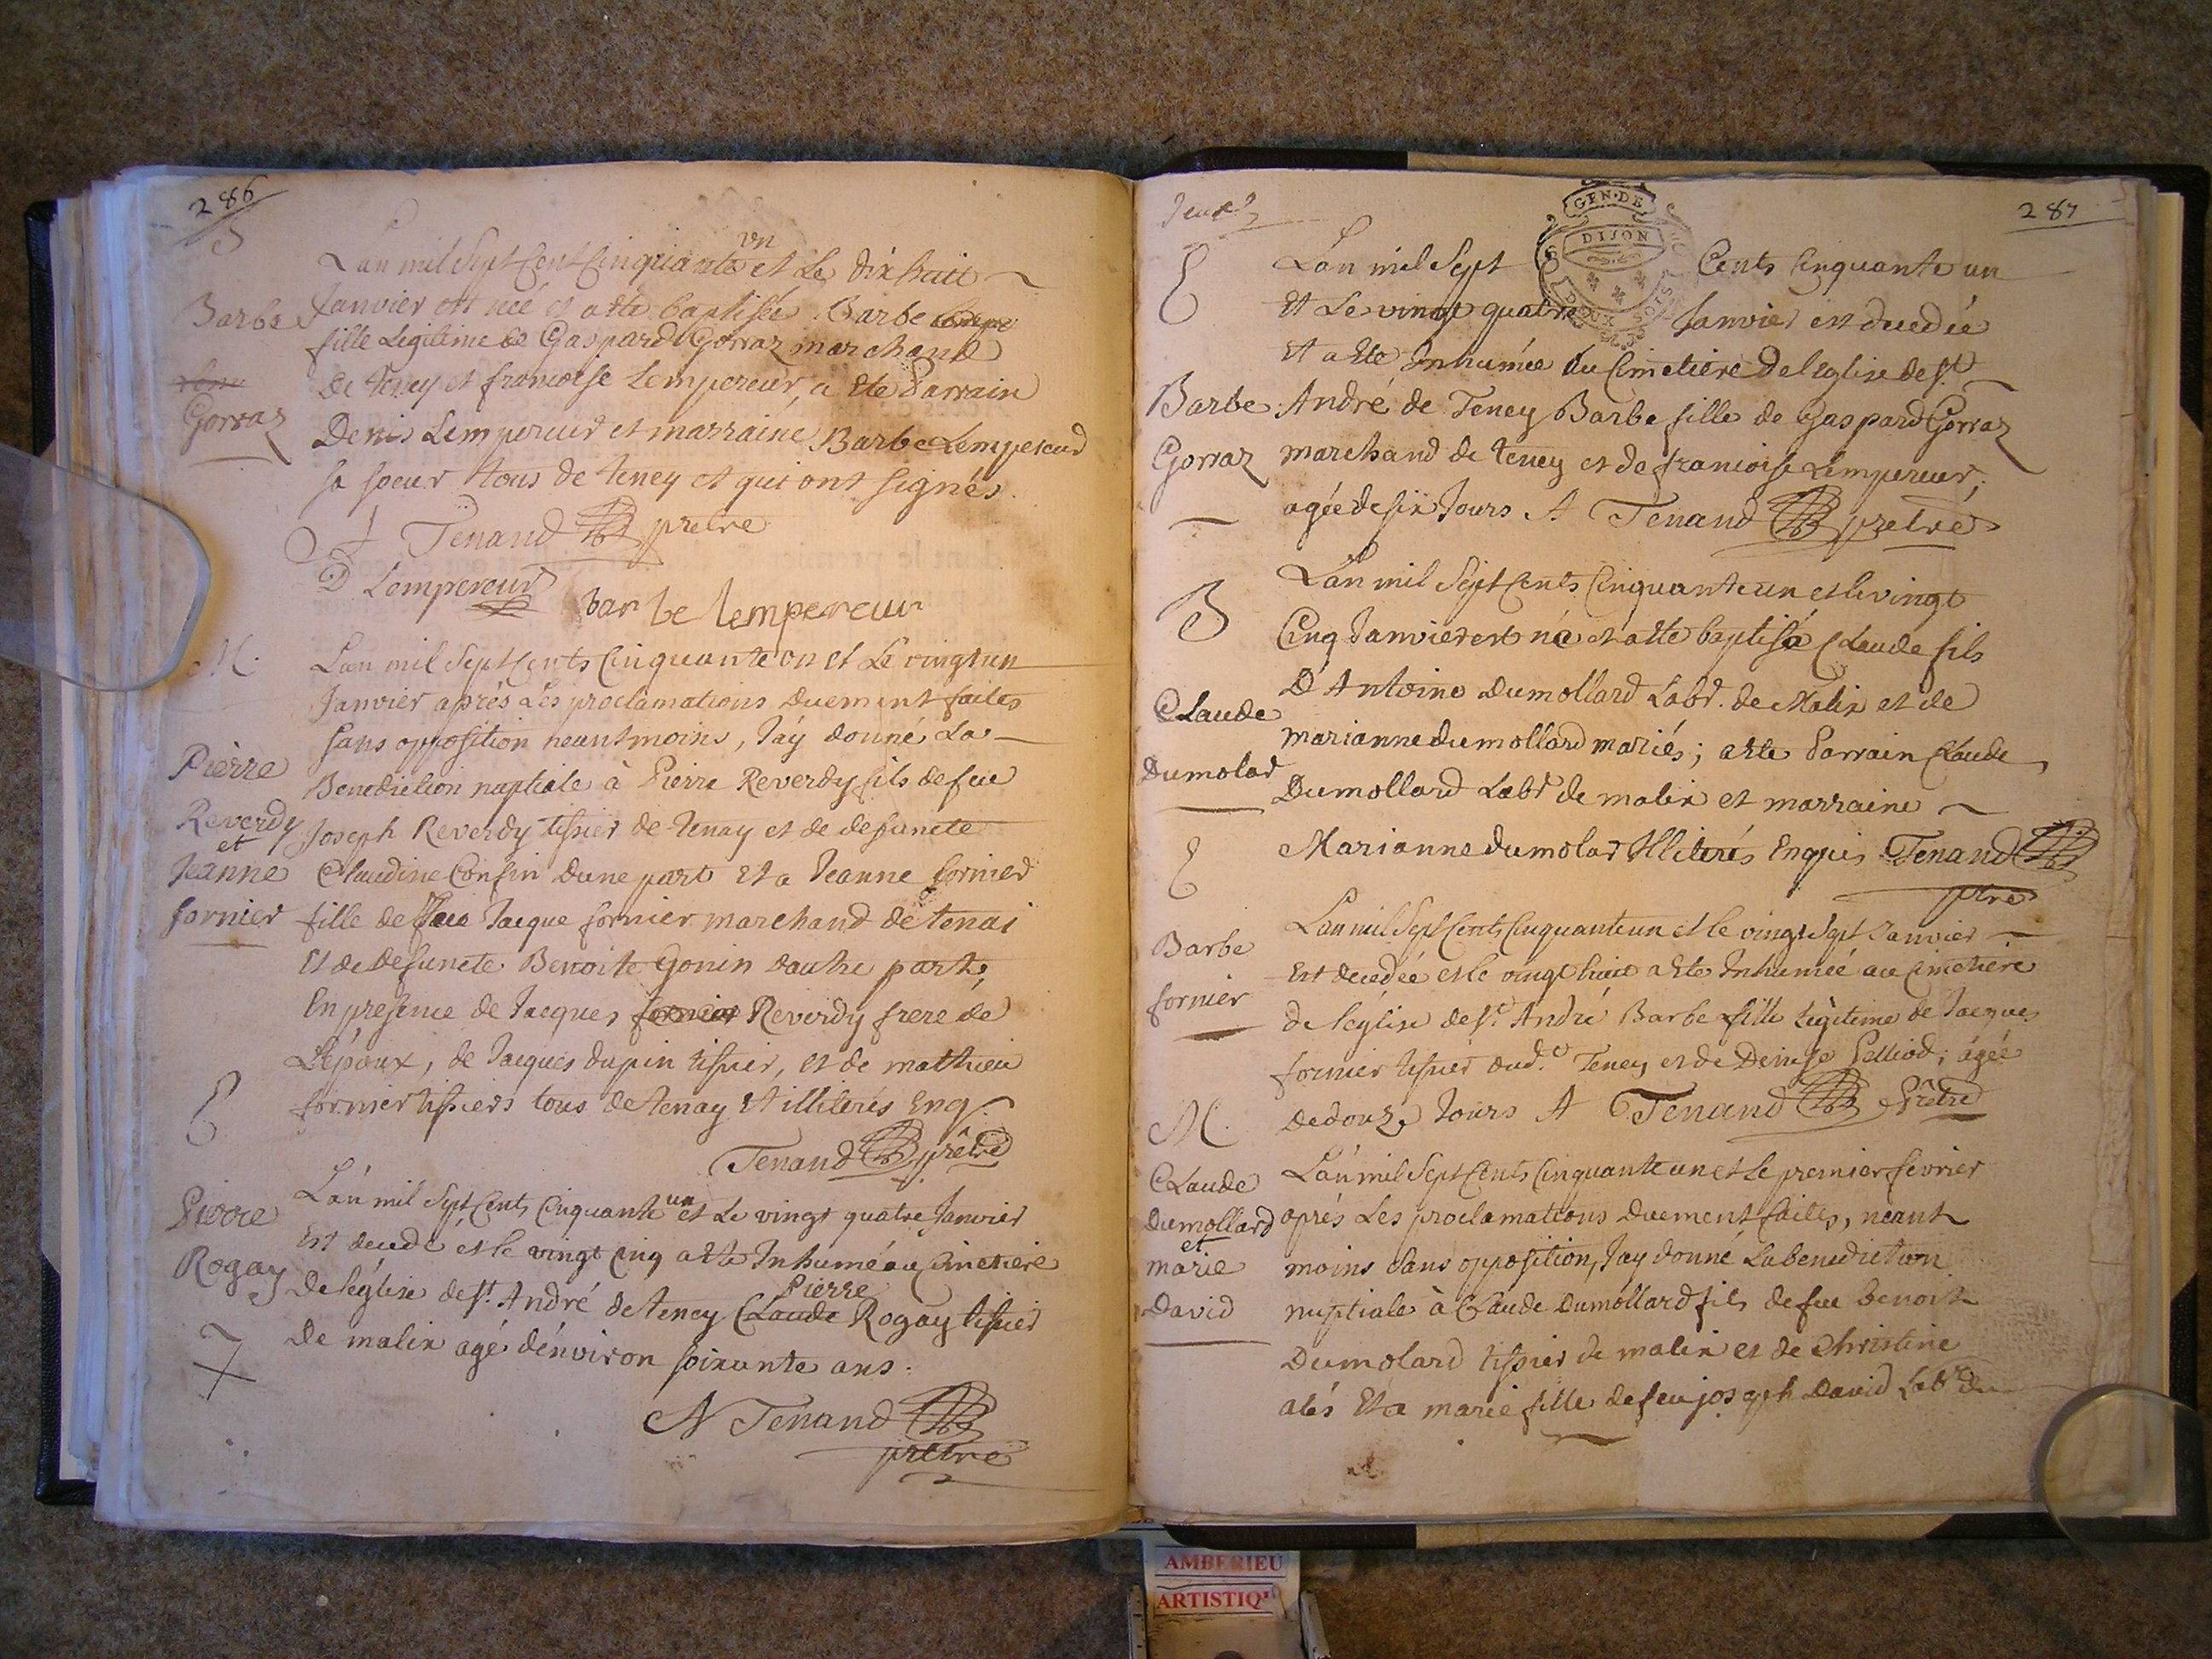 286
L'an mil Sept Cent Cinquante un et Le dix huit
Barbe
Janvier est neé et a ete baptisée Barbe
fille Legitime de Gaspard Gorraz marchand
de teney et francoise Lempereur, a Ete Parrain
Gorraz
Denis Lempereur et marraine Barbe Lempereur
sa soeur tous de teney et qui ont signés.
Tenand pretre
D Lempereur
barbe lempereur
M.
L'an mil Sept Cents Cinquante un et Le vingt un
Janvier aprés Les proclamations duement faites
sans opposition neantmoins, J'ay donné La
Pierre
Benediction nuptiale à Pierre Reverdy fils de feu
Reverdy
Joseph Reverdy tissier de tenay et de defuncte
et
Jeanne
Claudine Consin dune part Et a Jeanne fornier
fornier
fille de feu Jacque fornier marchand de tenai
Et de defuncte Benoite Gonin dautre part,
En presence de Jacques fornier Reverdy frere de
L'époux, de Jacques dupin tissier, et de mathieu
fornier tissiers tous de tenay Et illiterés Enq.
Tenand prêtre
L'an mil Sept Cents Cinquante un et Le vingt quatre Janvier
Pierre
Est decedé et le vingt cinq a ete Inhumé au Cimetiere
Rogay
de l'église de st. André de teney Claude Pierre Rogay tissier
De malix agé d'environ soixante ans.
A Tenand
pretre
287
GEN. DE
DIJON
L'an mil Sept Cents Cinquante un
Et Le vingt quatre Janvier est decedée
Et a Ete Inhumée au Cimetiere de l'eglise de st.
Barbe
André de Teney Barbe fille de Gaspard Gorraz
Gorraz
marchand de teney et de francoise Lempereur,
agée de six Jours A Tenand pretre
B
L'an mil Sept Cents Cinquante un et le vingt
Cinq Janvier est né et a ete baptisé Claude fils
Claude
D'Antoine Dumollard Labr. de Malix et de
marianne dumollard mariés; a ete Parrain Claude
Dumolar
Dumollard Labr de malix et marraine
Marianne dumolar Illiterés Enquis Tenand
ptre
L'an mil Sept Cents Cinquante un et le vingt Sept Janvier
Barbe
Est decedée et le vingt huit a Ete Inhumeé au Cimetiere
fornier
de l'église de st. André Barbe fille legitime de Jacques
fornier tissier dud. Teney et de Denise Pelliod; ágée
de douze Jours A Tenand Prêtre
M.
L'an mil Sept Cents Cinquante un et le premier fevrier
Claude
Dumollard
aprés Les proclamations duement faites, neant
et
marie
moins Sans opposition, J'ay donné La benediction
David
nuptiale à Claude Dumollard fils de feu benoit
Dumolard tissier de malix et de Christine
alés Et a marie fille de feu joseph David Labr du
AMBERIEU
ARTISTIQ